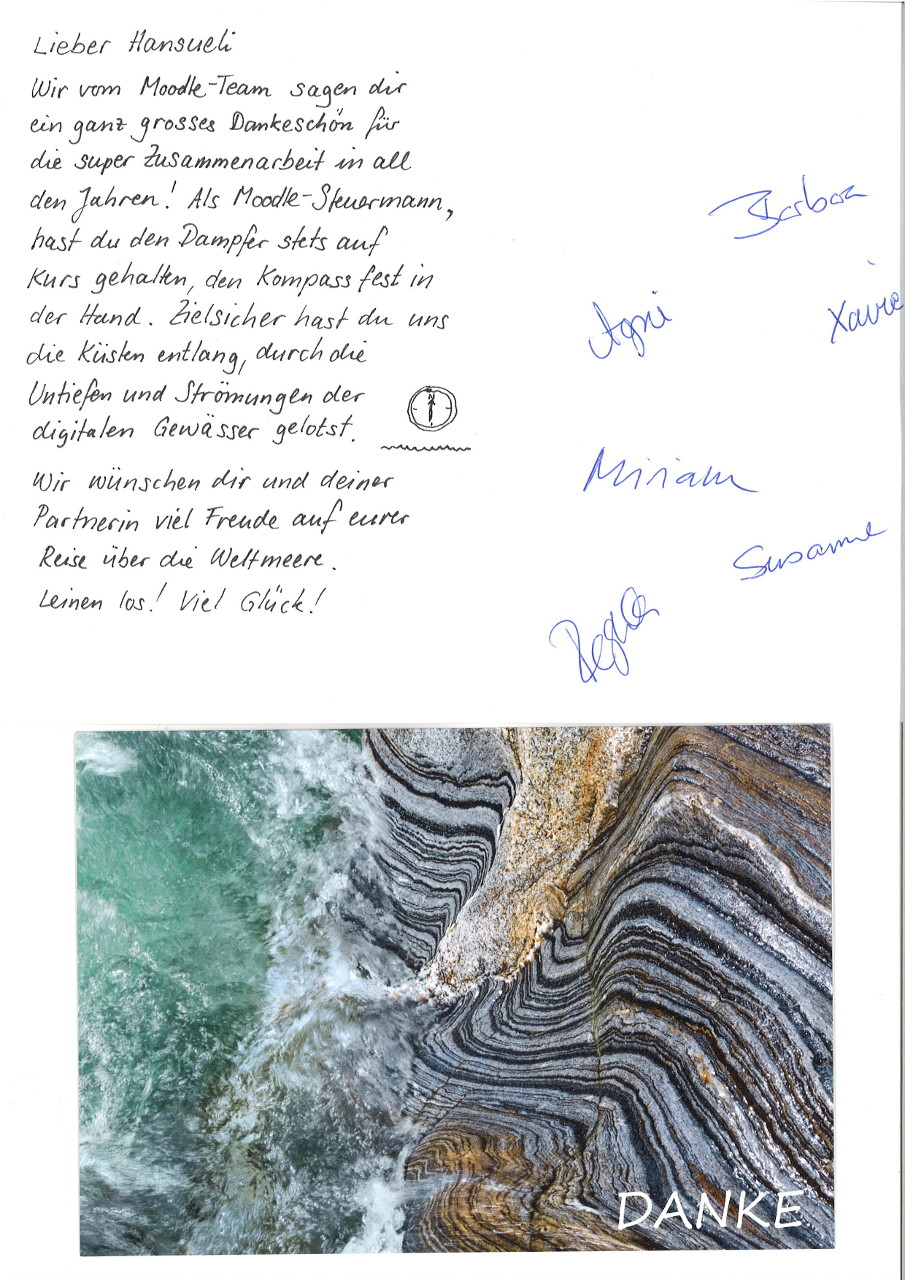 Lieber Hansueli
Wir vom Moodle-Team sagen dir
ein ganz grosses Dankeschön für
die super Zusammenarbeit in all
den Jahren! Als Moodle-Steuermann,
hast du den Dampfer stets auf
Kurs gehalten, den Kompass fest in
der Hand. Zielsicher hast du uns
die Küsten entlang, durch die
Untiefen und Strömungen der
digitalen Gewässer gelotst.
N
Wir wünschen dir und deiner
Partnerin viel Freude auf eurer
Reise über die Weltmeere.
Leinen los! Viel Glück!
Barbara
Xavie
Miriam
Susanne
DANKE